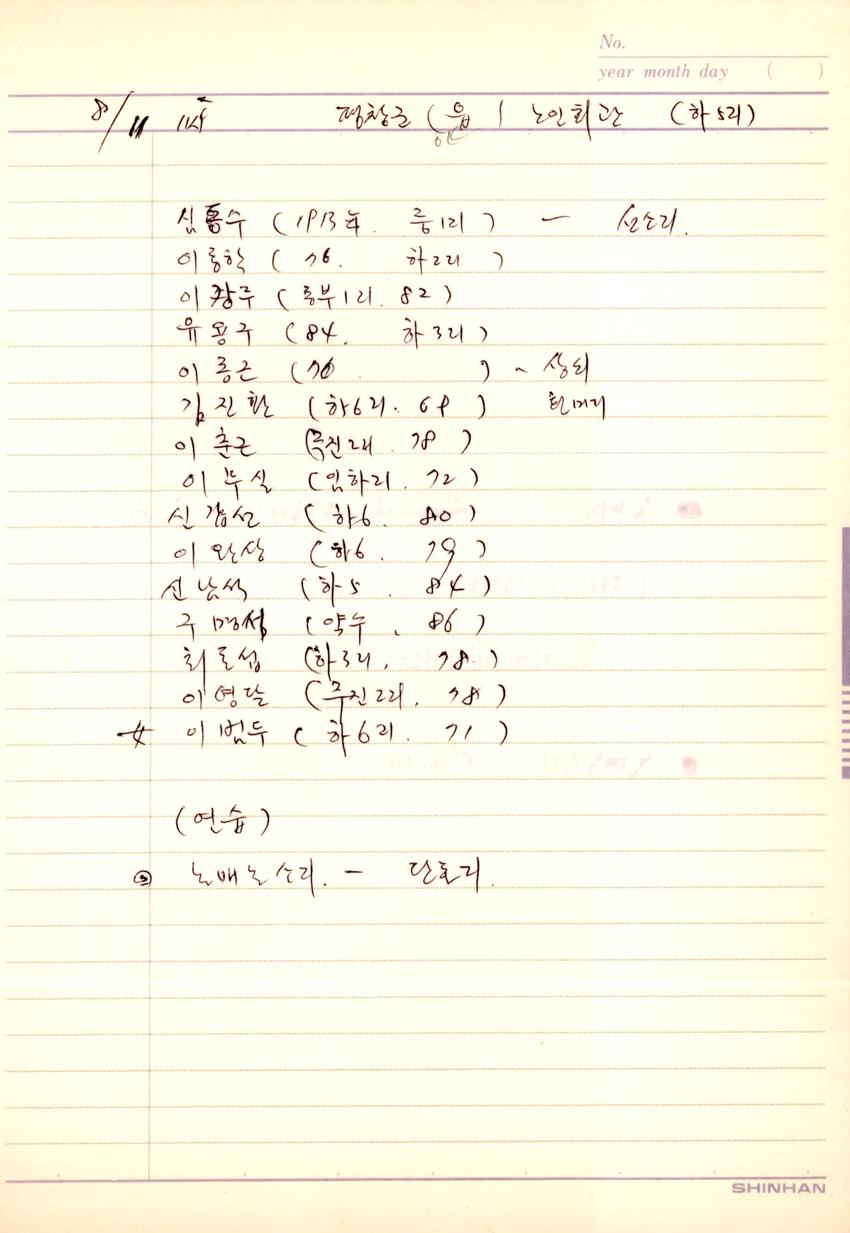 No.
year month day ( )
8/11 11시 평창군 (읍) 노인회관 (하5리)
심홍수 (1913年. 중1리) - 선소리.
이종학 (76. 하2리)
이창주 (종부1리. 82)
유용구 (84. 하3리)
이종근 (76 ) - 상회
김진환 (하6리. 69)
이춘근 (주진2리. 78)
이부실 (임하리. 72)
신갑선 (하6. 80)
이완상 (하6. 79)
신남석 (하5. 84)
구명성 (약수. 86)
최돈섭 (하3리. 78)
이영달 (주진2리. 78)
女 이범두 (하6리. 71)
(연습)
◎ 노배노소리. - 단토리.
SHINHAN